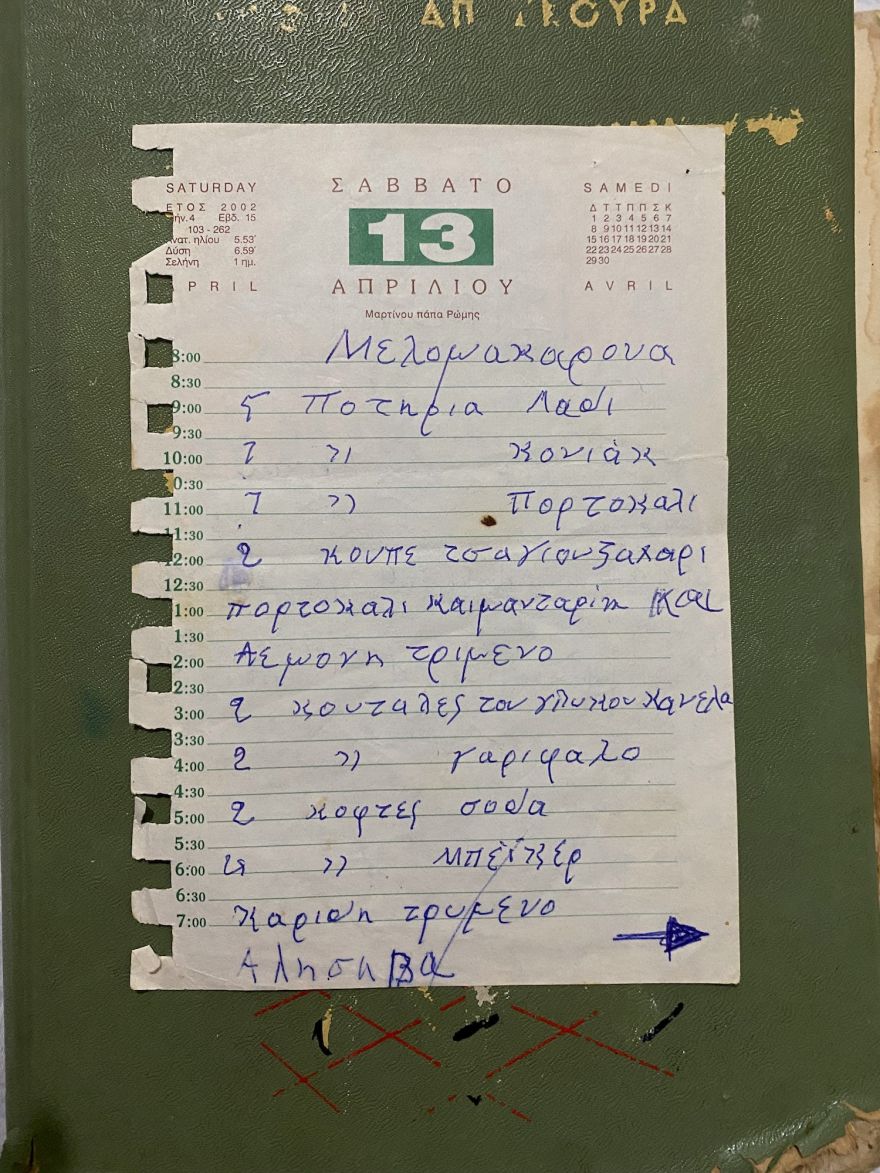 ΑΠ ΓΚΟΥΡΑ
SATURDAY ΣΑΒΒΑΤΟ SAMEDI
ΕΤΟΣ 2002 Δ Τ Τ Π Π Σ Κ
Μήν.4 Εβδ. 15 1 2 3 4 5 6 7
103 - 262 13 8 9 10 11 12 13 14
Ανατ. ηλίου 5.53' 15 16 17 18 19 20 21
Δύση 6.59' 22 23 24 25 26 27 28
Σελήνη 1 ημ. 29 30
APRIL ΑΠΡΙΛΙΟΥ AVRIL
Μαρτίνου πάπα Ρώμης
8:00 Μελομακαρονα
8:30
9:00 5 Ποτηρια Λαδι
9:30
10:00 1 》 κονιάκ
10:30
11:00 1 》 Πορτοκαλι
11:30
12:00 2 κουπε τσαγιου ζαχαρι
12:30
1:00 πορτοκαλι και μανταρίνι και
1:30
2:00 Λεμονη τριμενο
2:30
3:00 2 κουταλες του γλυκου κανελα
3:30
4:00 2 》 γαριφαλο
4:30
5:00 2 κοφτες σοδα
5:30
6:00 》 Μπέϊκερ
6:30
7:00 καριδη τρυμενο